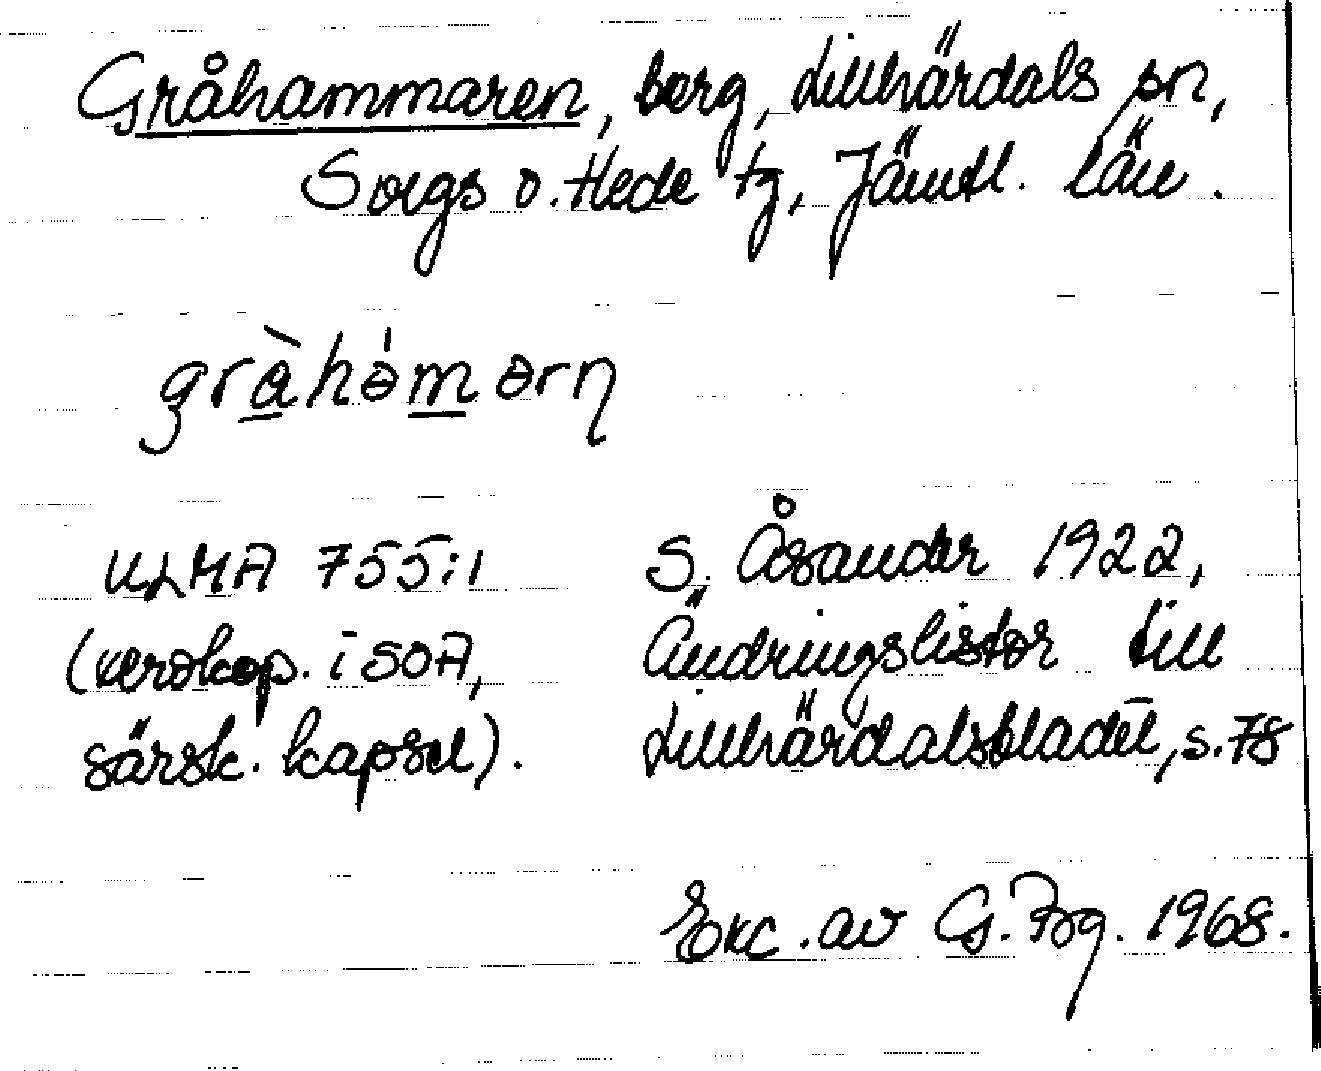 Gråhammaren, berg, Lillhärdals sn,
Svegs o. Hede tg, Jämtl. län.
gràhǝ́mǝrƞ
ULMA 755:1 S. Åsander 1922,
(xerokop. i SOA, Ändringslistor till
särsk. kapsel). Lillhärdalsbladet, s. 78
Exc. av G. Fbg. 1968.